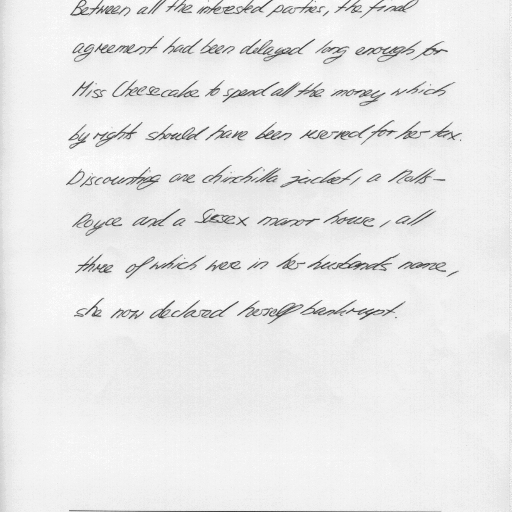 Between all the interested parties, the final
agreement had been delayed long enough for
Miss Cheesecake to spend all the money which
by rights should have been reserved for her tax.
Discounting one chinchilla jacket, a Rolls-
Royce and a Sussex manor house, all
three of which were in her husband's name,
she now declared herself bankrupt.